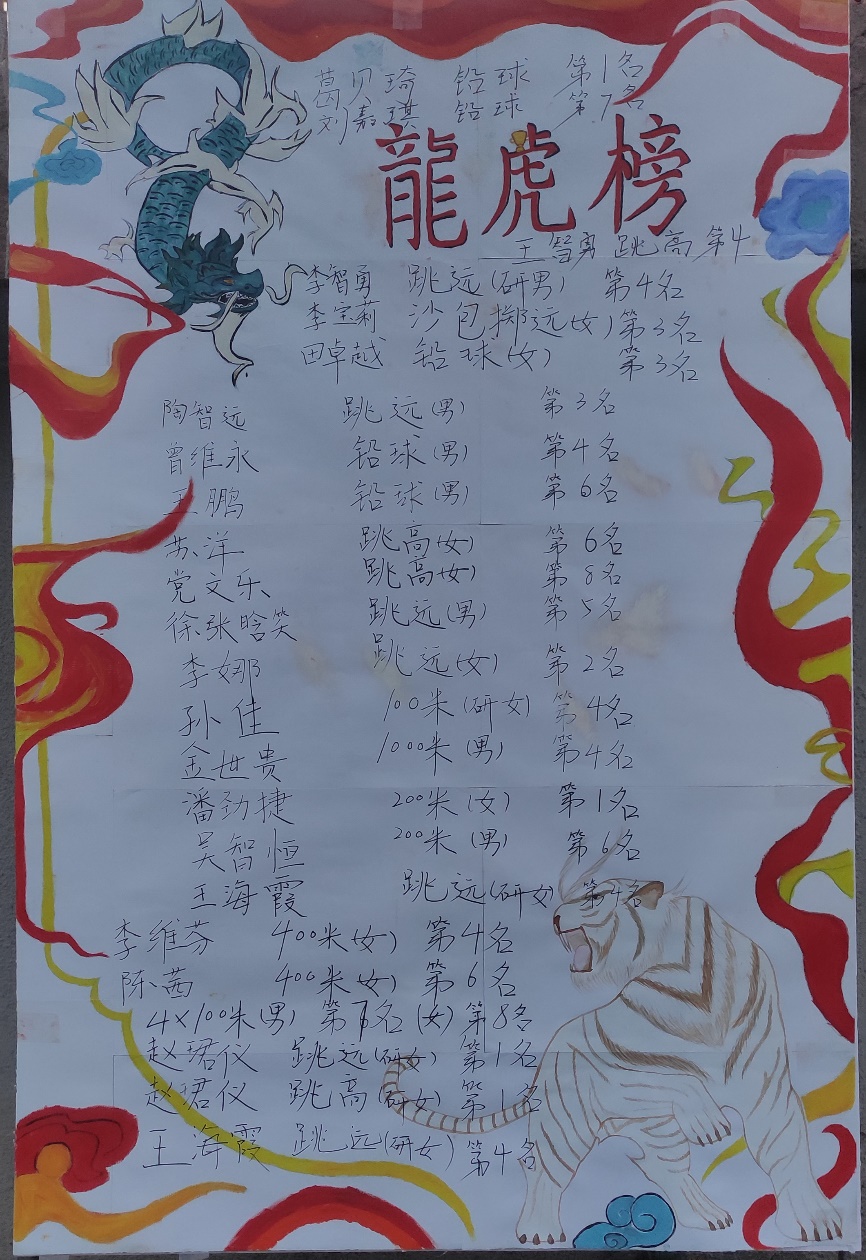 葛贝琦 铅球 第1名
刘嘉琪 铅球 第7名
龍虎榜
王智勇 跳高 第4
李智勇 跳远(研男) 第4名
李宝莉 沙包掷远(女) 第3名
田卓越 铅球(女) 第3名
陶智远 跳远(男) 第3名
曾维永 铅球(男) 第4名
王鹏 铅球(男) 第6名
苏洋 跳高(女) 第6名
党文乐 跳高(女) 第8名
徐张晗笑 跳远(男) 第5名
李娜 跳远(女) 第2名
孙佳 100米(研女) 第4名
金世贵 1000米(男) 第4名
潘劲捷 200米(女) 第1名
吴智恒 200米(男) 第6名
王海霞 跳远(研女) 第4名
李维芬 400米(女) 第4名
陈茜 400米(女) 第6名
4×100米(男) 第名 (女) 第8名
赵珺仪 跳远(研女) 第1名
赵珺仪 跳高(研女) 第1名
王海霞 跳远(研女) 第4名